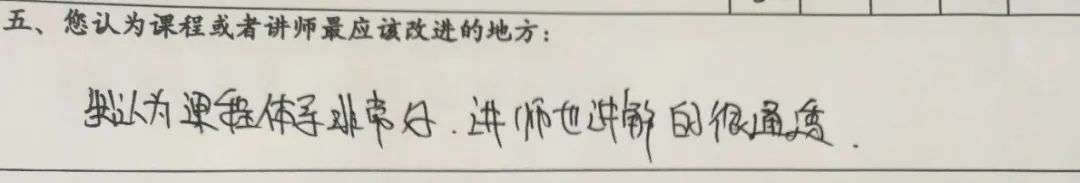 五、您认为课程或者讲师最应该改进的地方：
我认为课程体系非常好．讲师也讲解的很通透．